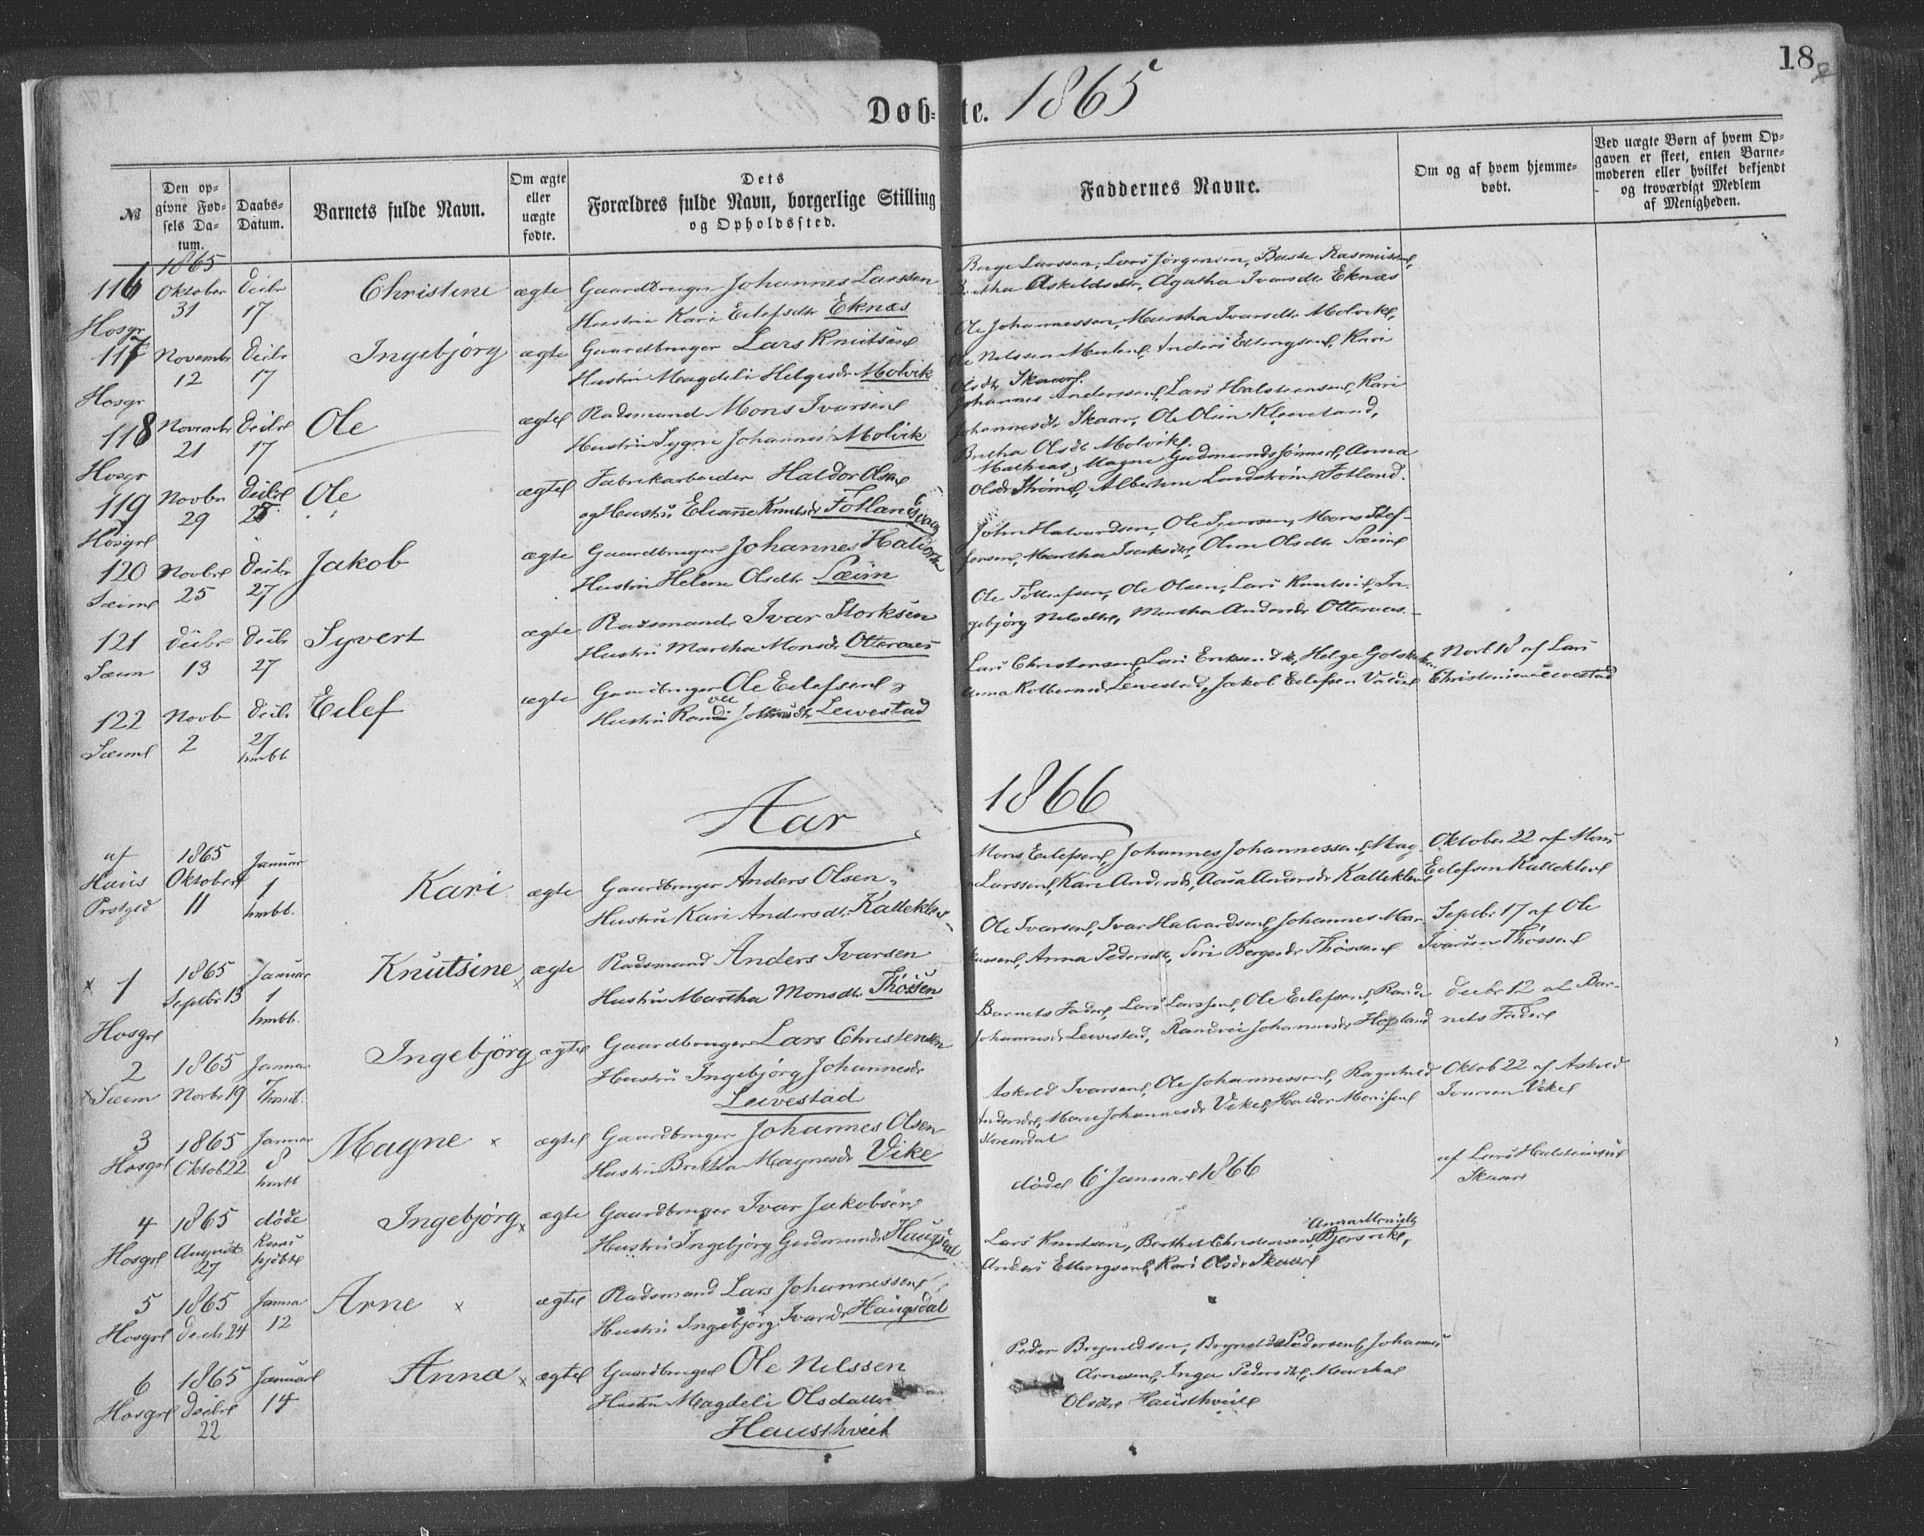 18
Døb=te. 1865
№
Den opgivne Fødsels Datum.
Daabs-Datum.
Barnets fulde Navn.
Om ægte eller uægte fødte.
Dets Forældres fulde Navn, borgerlige Stilling og Opholdssted.
Faddernes Navne.
Om og af hvem hjemmedøbt.
Ved uægte Børn af hvem Opgaven er skeet, enten Barnemoderen eller hvilket bekjendt og troværdigt Medlem af Menigheden.
1865
116 Oktober 31 Decbr 17 Christine ægte Gaardbruger Johannes Larssen
Hustru Kari Eilefsdtr Eknæs
Børge Larssen, Lars Jørgensen, Rasmussen,
Askildsdtr, Agatha Ivarsdtr Eknæs
Hosgr
117 Novembr 12 Decbr 17 Ingebjørg ægte Gaardbruger Lars Knutsen
Hustru Magdeli Helgesdr Molvik
Ole Johannessen, Martha Ivarsdtr Molvik,
Ole Nilssen Anders Ellingsen, Kari
Olsdtr Skaar
Hosgr
118 Novembr 21 Decbr 17 Ole ægte Radsmand Mons Ivarsen
Hustru Sygni Johannesdr Molvik
Johannes Anderssen, Lars Halsteensen, Kari
Johannesdtr Skaar, Ole Olsen Kleiveland,
Bretha Olsdtr Molvik
Hosgr
119 Novbr 29 Decbr Ole ægte Fabrikarbeider Haldor Olsen
og Hustru Eliane Knutsdr Fotland
Mathias, Magne Gudmundssønner, Anna
Olsdr Strømme, Albertine Lundstrøm Fotland.
Hosgr
120 Novbr 25 Decbr 27 Jakob ægte Gaardbruger Johannes Halvorsen
Hustru Helene Olsdtr Sæim
John Halvardsen, Ole Iversen, Mons
Martha Isaksdtr, Oline Olsdtr Sæim
Sæim
121 Decbr 13 Decbr 27 Syvert ægte Radsmand Ivar Storksen
Hustru Martha Monsdr Otteraas
Ole Tollefsen, Ole Olsen, Lars Knutsen, In-
gebjørg Nilsdtr, Martha Andersdr Otteraas
Sæim
122 Novb 2 Decbr 27 hmbt Eilef ægte Gaardbruger Ole Eilefsen
Hustru Randi Johnsdtr Levestad
Lars Christensen, Lars Eriksen Helge
Anna Kolbensdr Levestad, Jakob Eilefsen
Novb 18 af Lars
Christensen Levestad
Sæim
Aar 1866
af Haus Prstgjd 1865 Oktober 11 Januar 1 hmbt. Kari ægte Gaardbruger Anders Olsen
Hustru Kari Andersdtr Kalleklev
Mons Eilefsen, Johannes Johannessen, Mag-
Larssen, Kari Andersdr, Aasa Andersdr Kalleklev
Oktober 22 af Mons
Eilefsen Kalleklev
x 1 1865 Septbr 13 Januar 1 hmbt. Knutsine x ægte Radsmand Anders Ivarsen
Hustru Martha Monsdtr Thossen
Ole Ivarsen, Ivar Halvardsen, Johannes Mar-
kussen, Anna Pedersdtr, Siri Børgesdr Thossen
Septbr 17 af Ole
Ivarsen Thossen
Hosgr
2 1865 Novbr 19 Januar 7 hmbt. Ingebjørg ægte Gaardbruger Lars Christensen
Hustru Ingebjørg Johannesdr
Levestad
Barnets Fader, Lars Larssen, Ole Eilefsen, Randi
Johannesdr Levestad, Randvei Johannesdr Hopland
Decbr 12 af Bar-
nets Fader
x Sæim
3 1865 Oktob 22 Januar 8 hmbt Magne x ægte Gaardbruger Johannes Olsen
Hustru Bretha Magnesdr Vike
Askild Ivarsen, Ole Johannessen, Ragnhild
Andersdr, Mari Johannesdr Vike, Haldor Monssen
Oktob 22 af Askild
Ivarsen Vike
Hosgr
4 1865 August 27 døde hjdbt Ingebjørg x ægte Gaardbruger Ivar Jakobsen
Hustru Ingebjørg Gudmundsdr Haugsdal
døde 6 Januar 1866
af Lars Halsteinsen
Skaar
Hosgr
5 1865 Decb 24 Januar 12 Arne x ægte Radsmand Lars Johannessen
Hustru Ingebjørg Ivarsdr Haugsdal
Anna Monsdtr
Lars Knutsen, Berthel Christensen Bjørsvik,
Anders Ellingsen, Kari Olsdr Skaar
Hosgr
6 1865 Decbr 22 Januar 14 Anna x ægte Gaardbruger Ole Nilssen
Hustru Magdeli Olsdatter
Hausthveit
Peder Brynildsen, Brynild Pedersen, Johannes
Arnesen, Inga Pedersdtr, Martha
Olsdtr Hausthveit
Hosgr